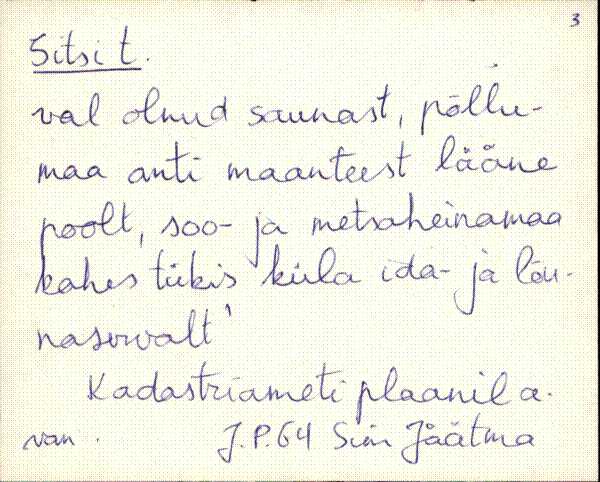 3
Sitsi t.
val olnud saunast, põllu-
maa anti maanteest lääne
poolt, soo- ja metsaheinamaa
kahes tükis küla ida- ja lõu-
naservalt'
Kadastriameti plaanil a.
van. J.P.64 Siim Jäätma